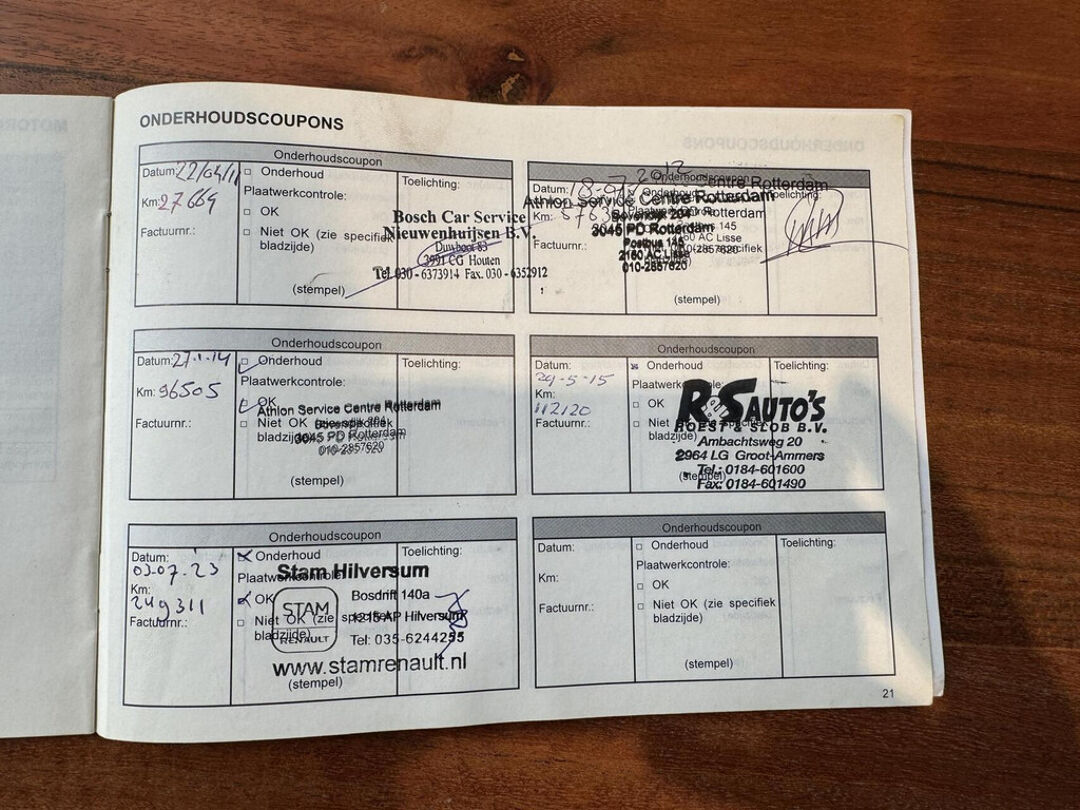 ONDERHOUDSCOUPONS
Onderhoudscoupon
Datum: 22/04/11
Km: 27669
Factuurnr.:
Onderhoud
Plaatwerkcontrole:
OK
Niet OK (zie specifiek
bladzijde)
(stempel)
Toelichting:
Bosch Car Service
Nieuwenhuijsen B.V.
Duwboot 83
3991 CG Houten
Tel. 030 - 6373914 Fax. 030 - 6352912
Onderhoudscoupon
Datum:
Km:
Factuurnr.:
Toelichting:
Athlon Service Centre Rotterdam
Bovendijk 204
3045 PD Rotterdam
Postbus 145
2160 AC Lisse
010-2857620
(stempel)
Onderhoudscoupon
Datum: 27.1.14
Km: 96505
Factuurnr.:
Onderhoud
Plaatwerkcontrole:
OK
Niet OK (zie specifiek
bladzijde)
(stempel)
Toelichting:
Athlon Service Centre Rotterdam
3045 PD Rotterdam
010-2857620
Onderhoudscoupon
Datum:
29-5-15
Km:
112120
Factuurnr.:
Onderhoud
Plaatwerkcontrole:
OK
Niet OK (zie specifiek
bladzijde)
(stempel)
Toelichting:
RS AUTO'S
ROEST & SLOB B.V.
Ambachtsweg 20
2964 LG Groot-Ammers
Tel.: 0184-601600
Fax: 0184-601490
Onderhoudscoupon
Datum:
03-07-23
Km:
249311
Factuurnr.:
Onderhoud
Plaatwerkcontrole:
OK
Niet OK (zie specifiek
bladzijde)
(stempel)
Toelichting:
Stam Hilversum
STAM
RENAULT
Bosdrift 140a
1215 AP Hilversum
Tel: 035-6244255
www.stamrenault.nl
Onderhoudscoupon
Datum:
Km:
Factuurnr.:
Onderhoud
Plaatwerkcontrole:
OK
Niet OK (zie specifiek
bladzijde)
(stempel)
Toelichting:
21